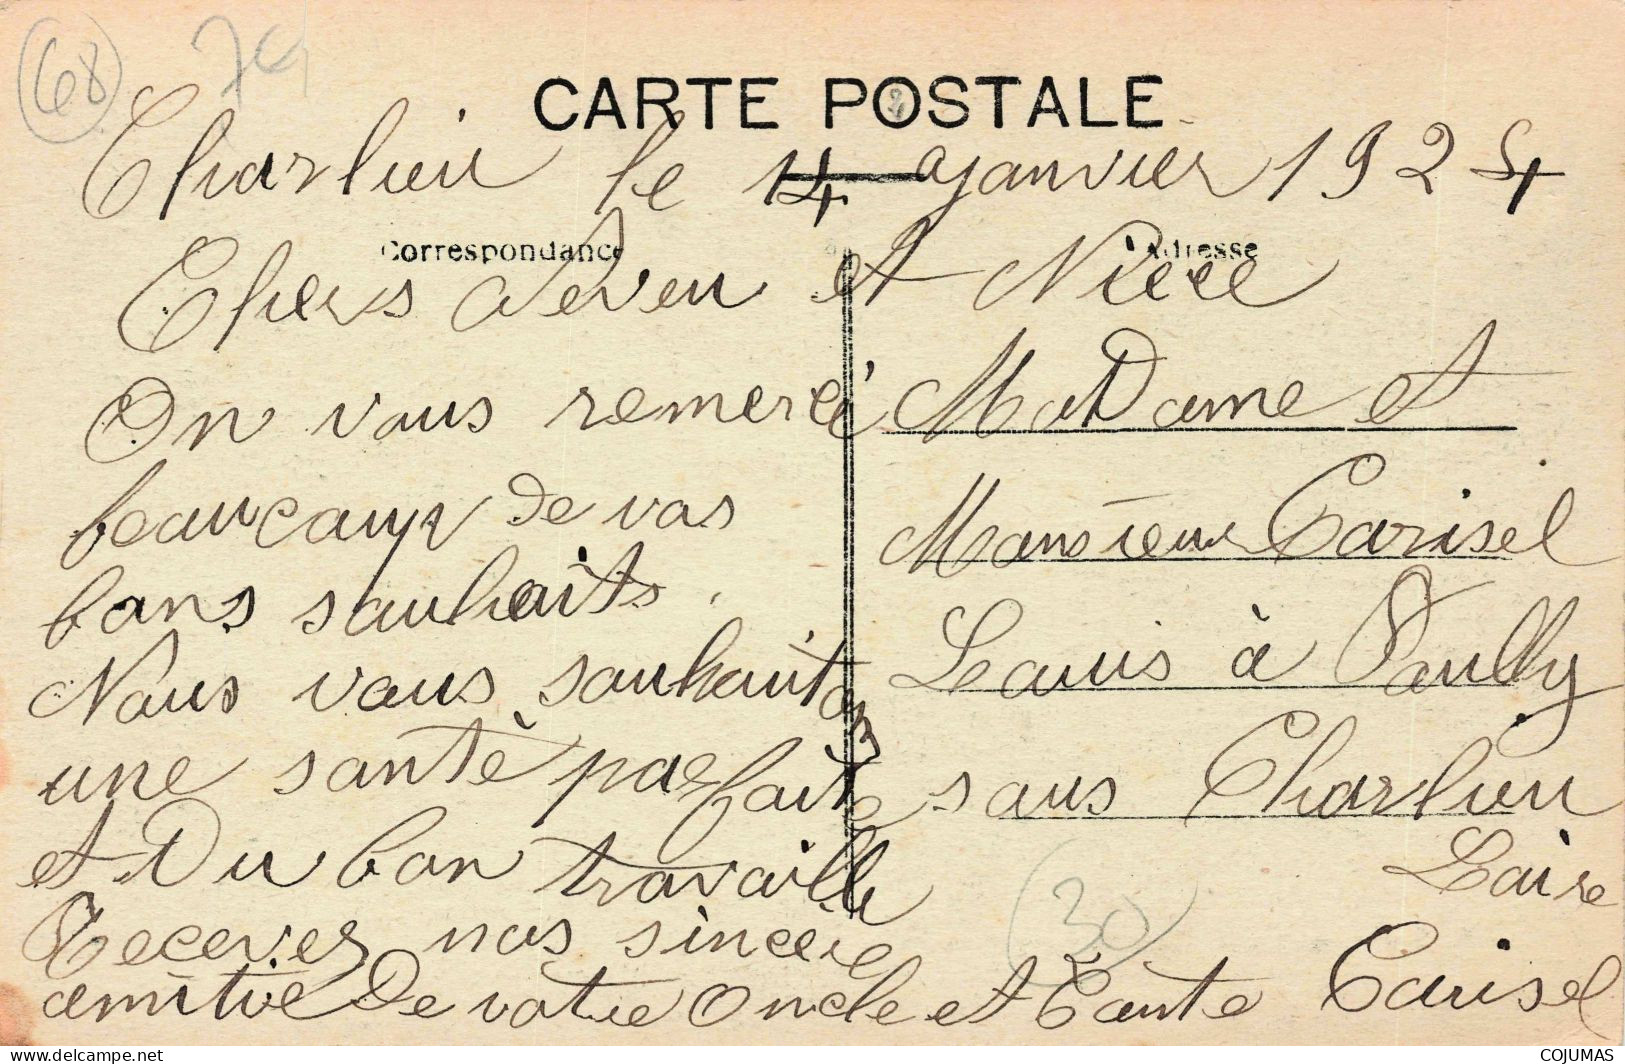 68
79
CARTE POSTALE
Charlieu le 4 janvier 1924
Correspondance
Adresse
Chers Neveu et Niece
On vous remerci
beaucaup de vos
bons souhaits.
Nous vous souhaitons
une santè parfaite
et Du bon travaille
Recever nos sincere
amitie De votre Oncle et Tante Carisel
MaDame et
Monsieur Carisel
Leauis à Pouilly
sous Charlieu
Loire
30
delcampe.net
COJUMAS